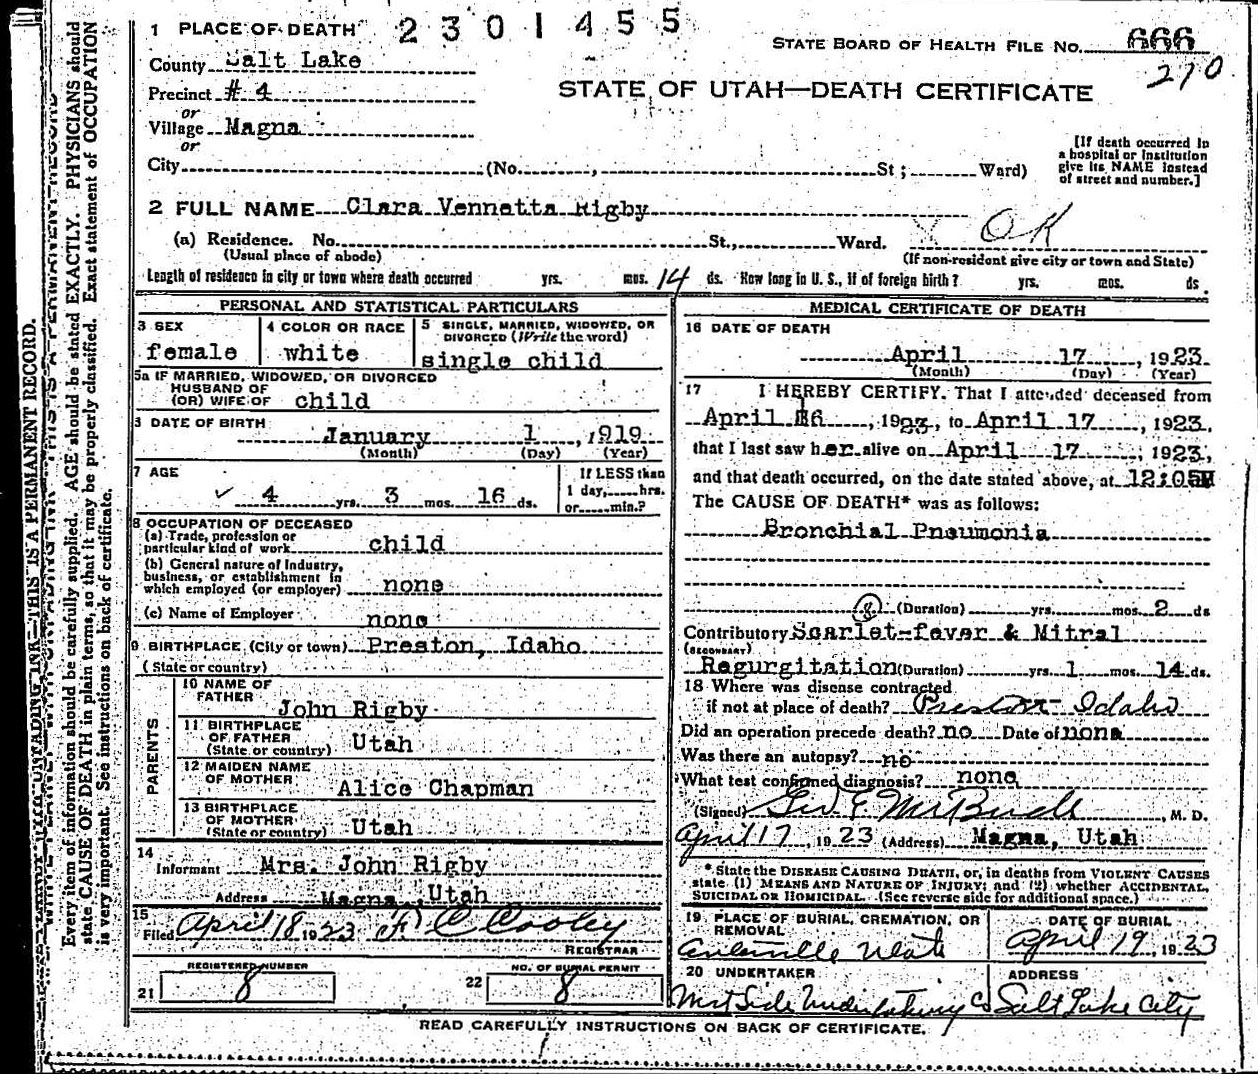 1 PLACE OF DEATH 2301455
STATE BOARD OF HEALTH FILE No. 666
270
County Salt Lake
Precinct # 4
or
Village Magna
or
STATE OF UTAH—DEATH CERTIFICATE
City (No. , St ; Ward)
[If death occurred in a hospital or institution give its NAME instead of street and number.]
2 FULL NAME Clara Vennetta Rigby
(a) Residence. No. St., Ward. X OK
(Usual place of abode) (If non-resident give city or town and State)
Length of residence in city or town where death occurred yrs. mos. 14 ds. How long in U. S., if of foreign birth? yrs. mos. ds.
PERSONAL AND STATISTICAL PARTICULARS
3 SEX
female
4 COLOR OR RACE
white
5 SINGLE, MARRIED, WIDOWED, OR DIVORCED (Write the word)
single child
5a IF MARRIED, WIDOWED, OR DIVORCED
HUSBAND OF
(OR) WIFE OF child
6 DATE OF BIRTH
January 1, 1919
(Month) (Day) (Year)
7 AGE
4 yrs. 3 mos. 16 ds.
If LESS than
1 day, hrs.
or min.?
8 OCCUPATION OF DECEASED
(a) Trade, profession or
particular kind of work child
(b) General nature of industry,
business, or establishment in
which employed (or employer) none
(c) Name of Employer none
9 BIRTHPLACE (City or town) Preston, Idaho
(State or country)
PARENTS
10 NAME OF
FATHER John Rigby
11 BIRTHPLACE
OF FATHER
(State or country) Utah
12 MAIDEN NAME
OF MOTHER Alice Chapman
13 BIRTHPLACE
OF MOTHER
(State or country) Utah
14
Informant Mrs. John Rigby
Address Magna, Utah
15
Filed April 18 1923 F C Cooley
REGISTRAR
21 REGISTERED NUMBER 8
22 NO. OF BURIAL PERMIT 8
MEDICAL CERTIFICATE OF DEATH
16 DATE OF DEATH
April 17, 1923
(Month) (Day) (Year)
17 I HEREBY CERTIFY. That I attended deceased from
April 16, 1923, to April 17, 1923,
that I last saw her alive on April 17, 1923,
and that death occurred, on the date stated above, at 12:05M
The CAUSE OF DEATH* was as follows:
Bronchial Pneumonia
(Duration) yrs. mos. 2 ds
Contributory Scarlet-fever & Mitral
(SECONDARY)
Regurgitation (Duration) yrs. 1 mos. 14 ds.
18 Where was disease contracted
if not at place of death? Preston Idaho
Did an operation precede death? no Date of none
Was there an autopsy? no
What test confirmed diagnosis? none
(Signed) , M. D.
April 17, 1923 (Address) Magna, Utah
*State the DISEASE CAUSING DEATH, or, in deaths from VIOLENT CAUSES
state (1) MEANS AND NATURE OF INJURY; and (2) whether ACCIDENTAL,
SUICIDAL OR HOMICIDAL. (See reverse side for additional space.)
19 PLACE OF BURIAL, CREMATION, OR
REMOVAL
Utah
DATE OF BURIAL
April 19, 1923
20 UNDERTAKER
West Side Undertaking Co
ADDRESS
Salt Lake City
READ CAREFULLY INSTRUCTIONS ON BACK OF CERTIFICATE.
THIS IS A PERMANENT RECORD.
Every item of information should be carefully supplied. AGE should be stated EXACTLY. PHYSICIANS should
state CAUSE OF DEATH in plain terms, so that it may be properly classified. Exact statement of OCCUPATION
is very important. See instructions on back of certificate.